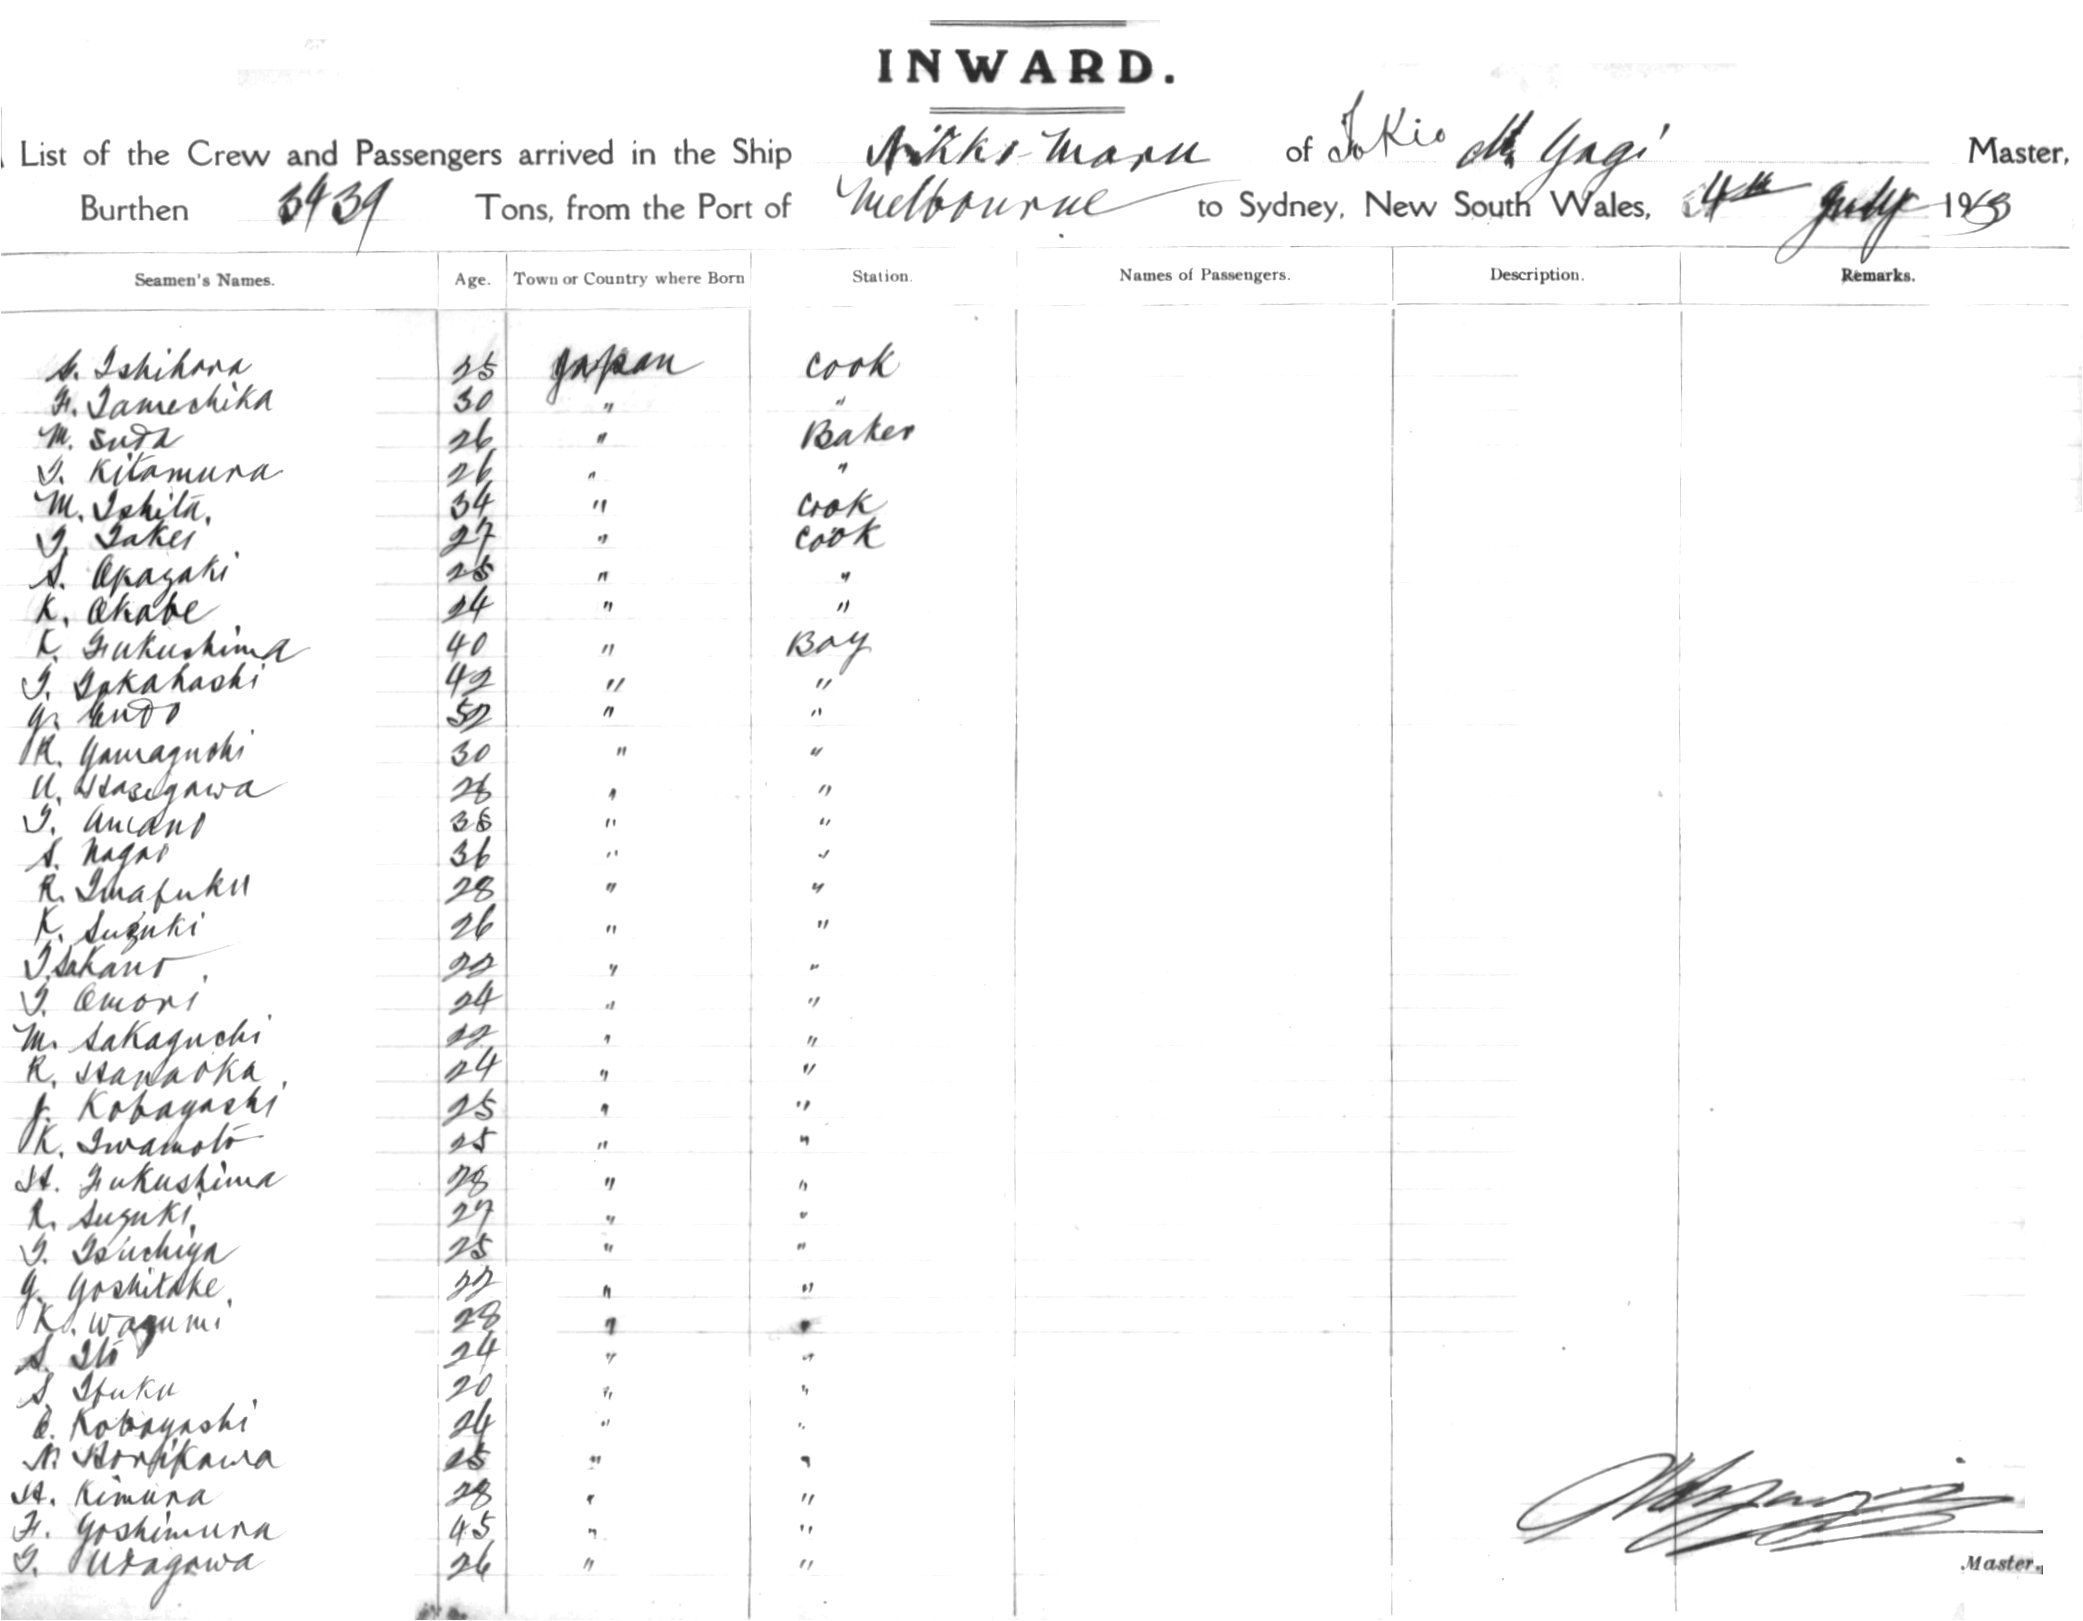 INWARD.
List of the Crew and Passengers arrived in the Ship Nikko Maru of Tokio M. Yagi Master,
Burthen 3439 Tons, from the Port of Melbourne to Sydney, New South Wales, 4th July 19
Seamen's Names. Age. Town or Country where Born Station. Names of Passengers. Description. Remarks.
Ishihara 25 Japan Cook
F. Tamechika 30 " "
M. Suda 26 " Baker
T. Kitamura 26 " "
M. Ishita. 34 " Cook
T. Takei 27 " Cook
S. Okazaki 25 " "
K. Okabe 24 " "
K. Fukushima 40 " Boy
T. Takahashi 42 " "
Y. Endo 52 " "
R. Yamaguchi 30 " "
U. Hasegawa 28 " "
T. Amano 38 " "
S. Nagao 36 " "
R. Imafuku 28 " "
K. Suzuki 26 " "
T. Sakano 22 " "
T. Omori 24 " "
M. Sakaguchi 22 " "
R. Hanaoka 24 " "
J. Kobayashi 25 " "
K. Iwamoto 25 " "
H. Fukushima 28 " "
R. Suzuki 27 " "
T. Tsuchiya 25 " "
Y. Yoshitake 22 " "
K. Wazumi 28 " "
S. Ito 24 " "
S. Ifuku 20 " "
Kobayashi 24 " "
N. Horikawa 25 " "
H. Kimura 28 " "
F. Yoshimura 45 " "
T. Udagawa 26 " "
Master.